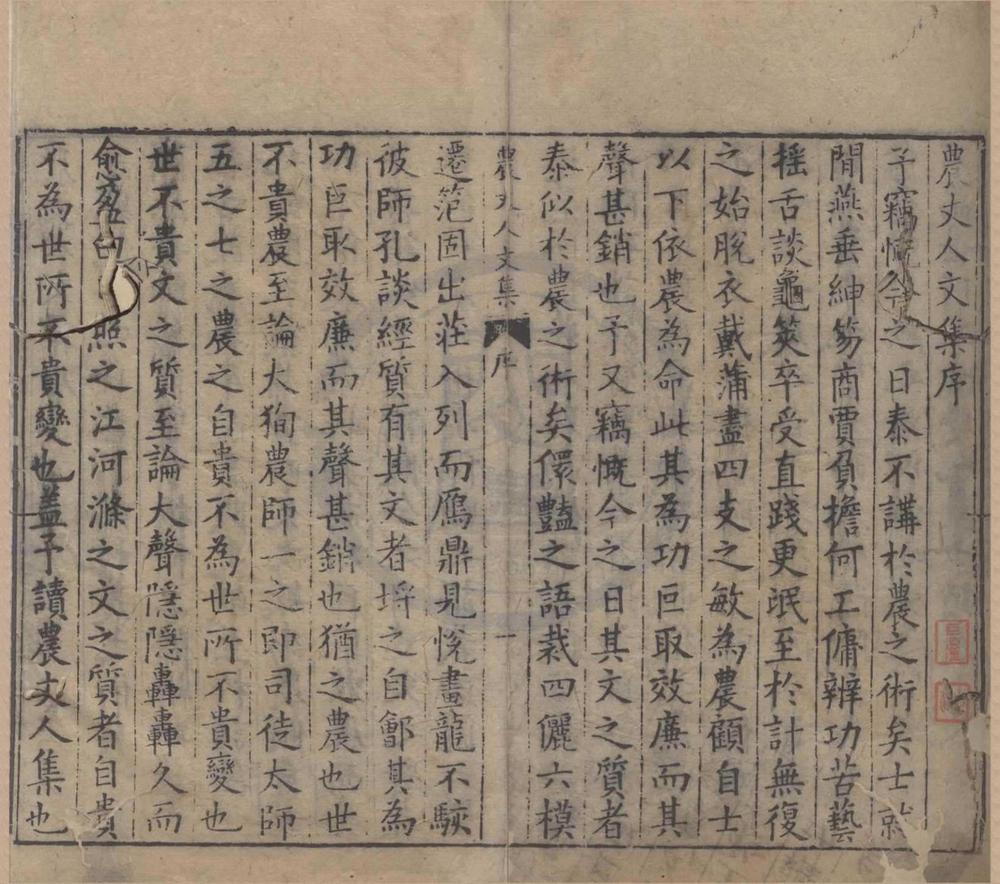 農丈人文集序
予竊慨今之日泰不講於農之術矣士就
閒燕垂紳笏商賈負檐何工傭辨功苦藝
揺舌談龜筴卒受直踐更氓至於計無復
之始脫衣戴蒲盡四支之敏為農顧自士
以下依農為命此其為功巨取效廉而其
聲甚銷也予又竊慨今之日其文之質者
泰似於農之術矣儇豔之語裁四儷六模
農丈人文集 序 一
遷范固出莊入列而鴈鼎見悅畫龍不駭
彼師孔談經質有其文者埒之自鄶其為
功巨取效廉而其聲甚銷也猶之農也世
不貴農至論大狥農師一之即司徒太師
五之七之農之自貴不為世所不貴變也
世不貴文之質至論大聲隱隱轟轟久而
愈 照之江河滌之文之質者自貴
不為世所不貴變也盖予讀農丈人集也